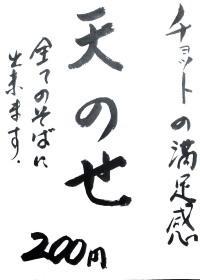 チョットの満足感
天のせ
全てのそばに
出来ます.
200円